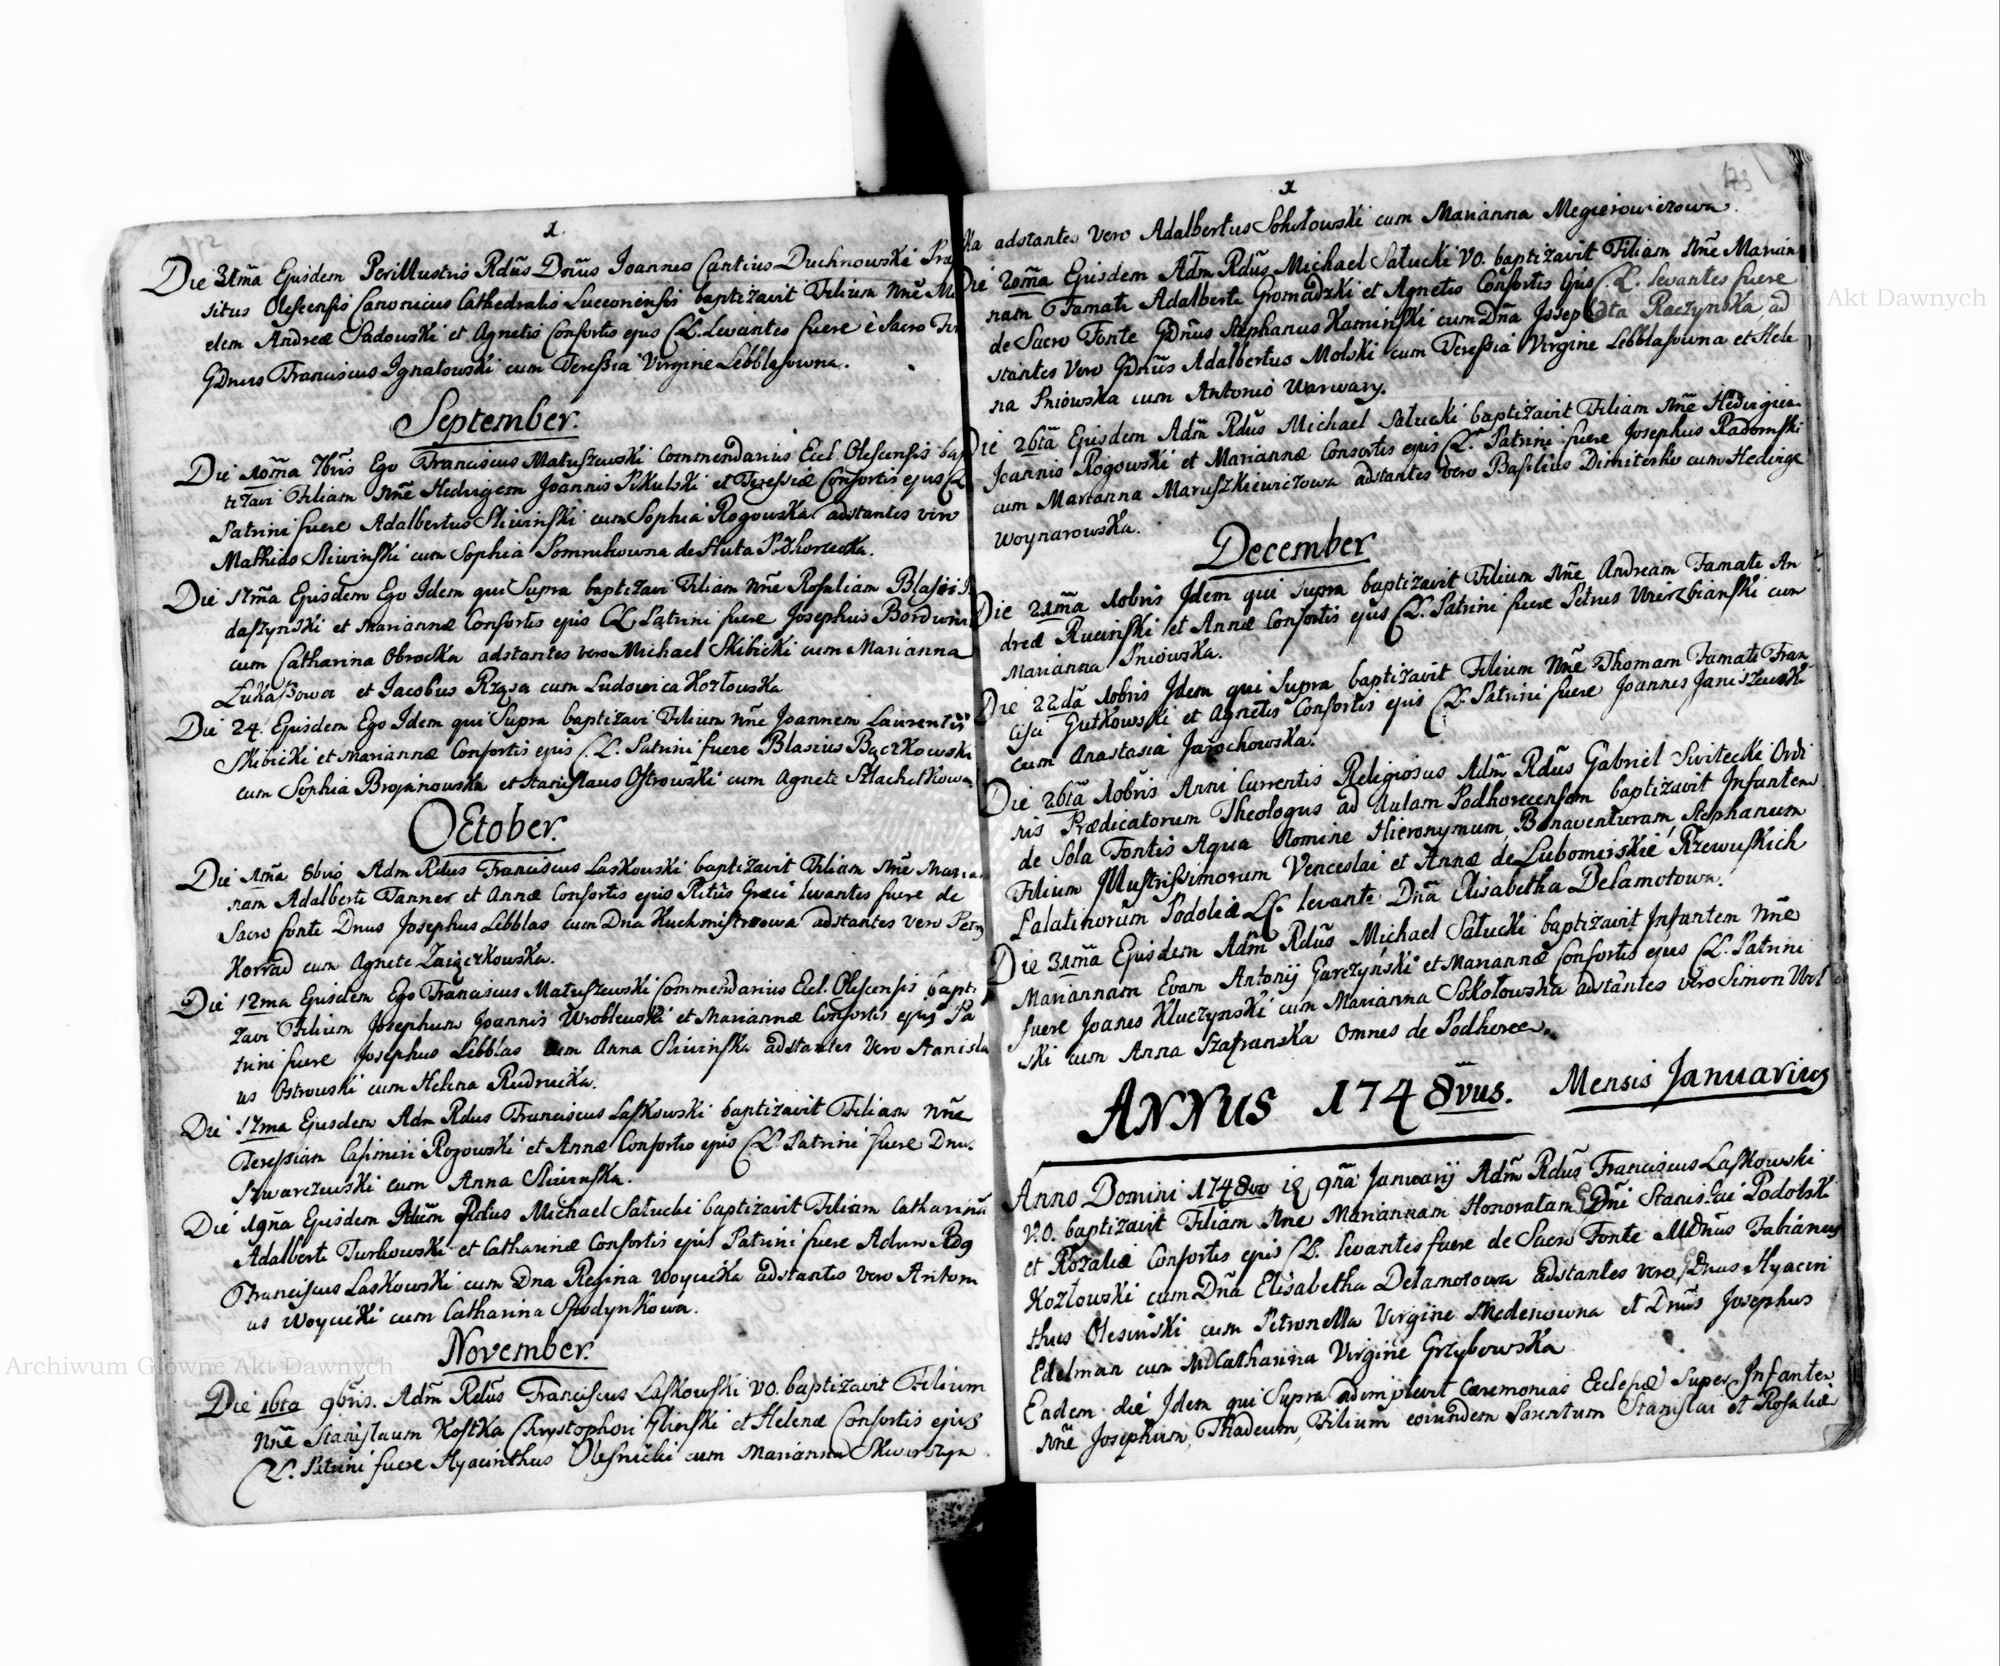 172
x.
Die 31ma Ejusdem Perillustris Rdus Dnus Joannes Cantius Duchnowski Præ
situs Olescensis Canonicus Cathedralis Luceoriensis baptizavit Filium nne
elem Andreæ Sadowski et Agnetis Consortis ejus CL. Levantes fuere è Sacro
Gdnus Franciscus Ignatowski cum Teressia Virgine Lebblasowna.
September.
Die 10ma 7bris Ego Franciscus Matuszewski Commendarius Eccl. Olescensis bap
tizavi Filiam nne Hedvigem Joannis Pikulski et Teressiæ Consortis ejus
Patrini fuere Adalbertus Sliwinski cum Sophia Rogowska adstantes vero
Mathias Sliwinski cum Sophia Pomrukowna de Huta Podhorecka.
Die 17ma Ejusdem Ego Idem qui Supra baptizavi Filiam nne Rosaliam Blasii
daszynski et Mariannæ Consortis ejus CL Patrini fuere Josephus
cum Catharina Obrocka adstantes vero Michael Skibicki cum Marianna
et Jacobus Rząsa cum Ludovica Kozłowska
Die 24. Ejusdem Ego Idem qui Supra baptizavi Filium nne Joannem Laurentii
Skibicki et Mariannæ Consortis ejus CL. Patrini fuere Blasius Bączkowski
cum Sophia Brojanowska et Stanislaus Ostrowski cum Agnete
October.
Die 1ma 8bris Adm Rdus Franciscus Laskowski baptizavit Filiam nne Maria
nam Adalberti Tanner et Annæ Consortis ejus Ritus Græci levantes fuere de
Sacro fonte Dnus Josephus Lebblas cum Dna Kuchmistrzowa adstantes vero
Korrad cum Agnete Zaiączkowska.
Die 12ma Ejusdem Ego Franciscus Matuszewski Commendarius Eccl. Olescensis bapti
zavi Filium Josephum Joannis Wroblewski et Mariannæ Consortis ejus Pa
trini fuere Josephus Lebblas cum Anna Sliwinska adstantes vero Stanisla
us Ostrowski cum Helena Rudnicka.
Die 17ma Ejusdem Adm Rdus Franciscus Laskowski baptizavit Filiam nne
Teressiam Casimiri Rogowski et Annæ Consortis ejus CL. Patrini fuere Dnus
Szwarczewski cum Anna Sliwinska.
Die 19na Ejusdem Adum Rdus Michael Satucki baptizavit Filiam Catharinã
Adalberti Turkowski et Catharinæ Consortis ejus Patrini fuere Adum Rdg
Franciscus Laskowski cum Dna Regina Woycicka adstantes vero Antoni
us Woycicki cum Catharina
November.
Die 16ta 9bris. Adm Rdus Franciscus Laskowski VO. baptizavit Filium
nne Stanislaum Kostka Chrystophori Glinski et Helenæ Consortis ejus
CL. Patrini fuere Hyacinthus Olesnicki cum Marianna
173
x
ska adstantes vero Adalbertus Sokołowski cum Marianna Megierowiczowa.
Die 20ma Ejusdem Adm Rdus Michael Satucki VO. baptizavit Filiam nne Marian
nam Famati Adalberti Gromadzki et Agnetis Consortis Ejus CL. levantes fuere
de Sacro Fonte Gdnus Stephanus Kaminski cum Dna Josepata Raczynska, ad
stantes vero Gdnus Adalbertus Molski cum Teressia Virgine Lebblasowna et Hele
na Pniowska cum Antonio Warwary.
Die 26ta Ejusdem Adm Rdus Michael Satucki baptizavit Filiam nne Hedvigem
Joannis Rogowski et Mariannæ Consortis ejus CL. Patrini fuere Josephus Radomski
cum Marianna Maruszkiewiczowa adstantes vero Basilius Dimiterko cum Hedvige
Woynarowska.
December
Die 21ma 10bris Idem qui supra baptizavit Filium nne Andream Famati An
dreæ Rucinski et Annæ Consortis ejus CL. Patrini fuere Petrus Wierzbianski cum
Marianna Pniowska.
Die 22da 10bris Idem qui Supra baptizavit Filium nne Thomam Famati Fran
cisci Gutkowski et Agnetis Consortis ejus CL. Patrini fuere Joannes Janiszewski
cum Anastasia Jarochowska.
Die 26ta 10bris Anni Currentis Religiosus Adm Rdus Gabriel Siwitecki Ordi
nis Prædicatorum Theologus ad Aulam Podhorecensem baptizavit Infantem
de Sola Fontis Aqua Nomine Hieronymum, Bonaventuram, Stephanum
Filium Illustrissimorum Venceslai et Annæ de Lubomirskie, Rzewuskich
Palatinorum Podoliæ CL. levante Dna Elisabetha Delamotowa.
Die 31ma Ejusdem Adm Rdus Michael Satucki baptizavit Infantem nne
Mariannam Evam Antonij Garczynski et Mariannæ Consortis ejus CL. Patrini
fuere Joanes Kluczynski cum Marianna Sokołowska adstantes vero Simon Wol
ski cum Anna Szafranska Omnes de Podhorce.
ANNUS 1748vus. Mensis Januarius
Anno Domini 1748vo 19 9na Januarij Adm Rdus Franciscus Laskowski
V.O. baptizavit Filiam nne Mariannam Honoratam GDni Stanislai Podolski
et Rozaliæ Consortis ejus CL. levantes fuere de Sacro Fonte MDnus Fabianus
Kozłowski cum Dna Elisabetha Delamotowa adstantes vero GDnus Hyacin
thus Olesinski cum Petronella Virgine Medenowna et Dnus Josephus
Edelman cum MD Catharina Virgine Grzybowska
Eadem die Idem qui Supra adimplevit Cæremonias Ecclesiæ Super Infantem
nne Josephum, Thadeum, Filium eorundem Parentum Stanislai et Rosaliæ